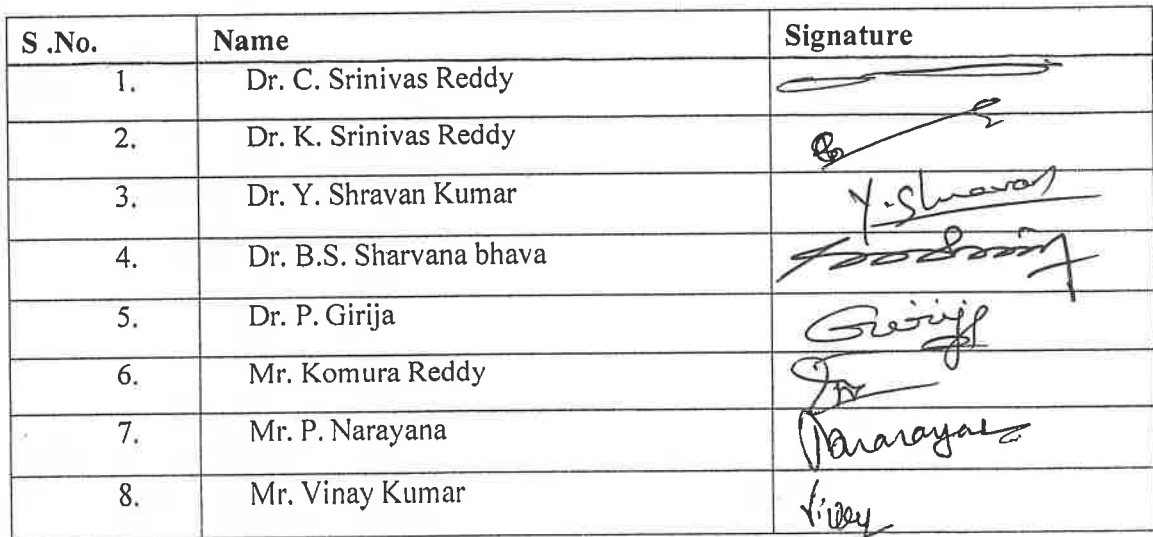 S .No. Name Signature
1. Dr. C. Srinivas Reddy
2. Dr. K. Srinivas Reddy
3. Dr. Y. Shravan Kumar Y. Shravan
4. Dr. B.S. Sharvana bhava
5. Dr. P. Girija Girija
6. Mr. Komura Reddy
7. Mr. P. Narayana Narayana
8. Mr. Vinay Kumar Vinay